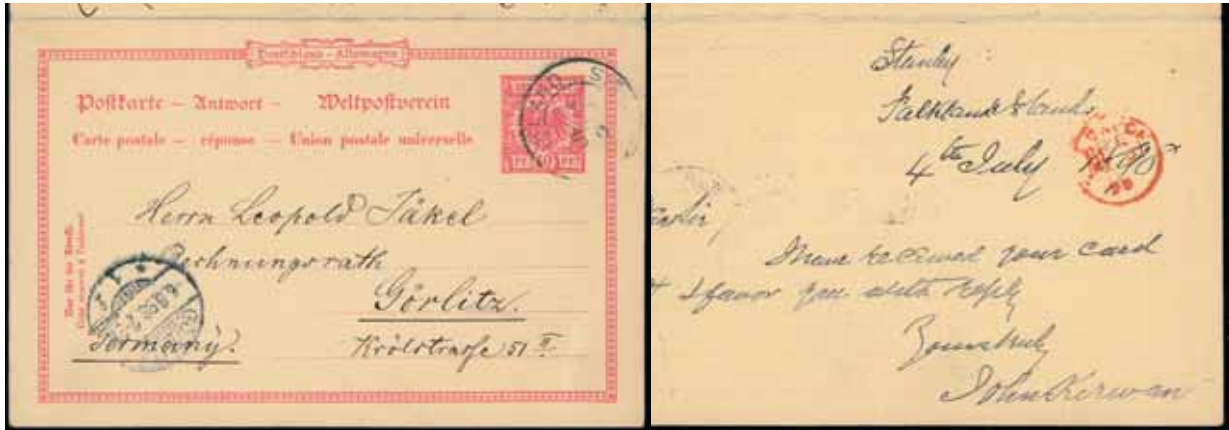 Deutschland – Allemagne
Postkarte – Antwort – Weltpostverein
Carte postale – réponse – Union postale universelle
10
Herrn Leopold Jäkel
Rechnungsrath
Görlitz.
Germany.
Krölstrasse 51 II
Nur für die Adresse.
Stanley
Falkland Islands
4th July
Have received your card
& I favor you with reply
Yours truly
John Kirwan